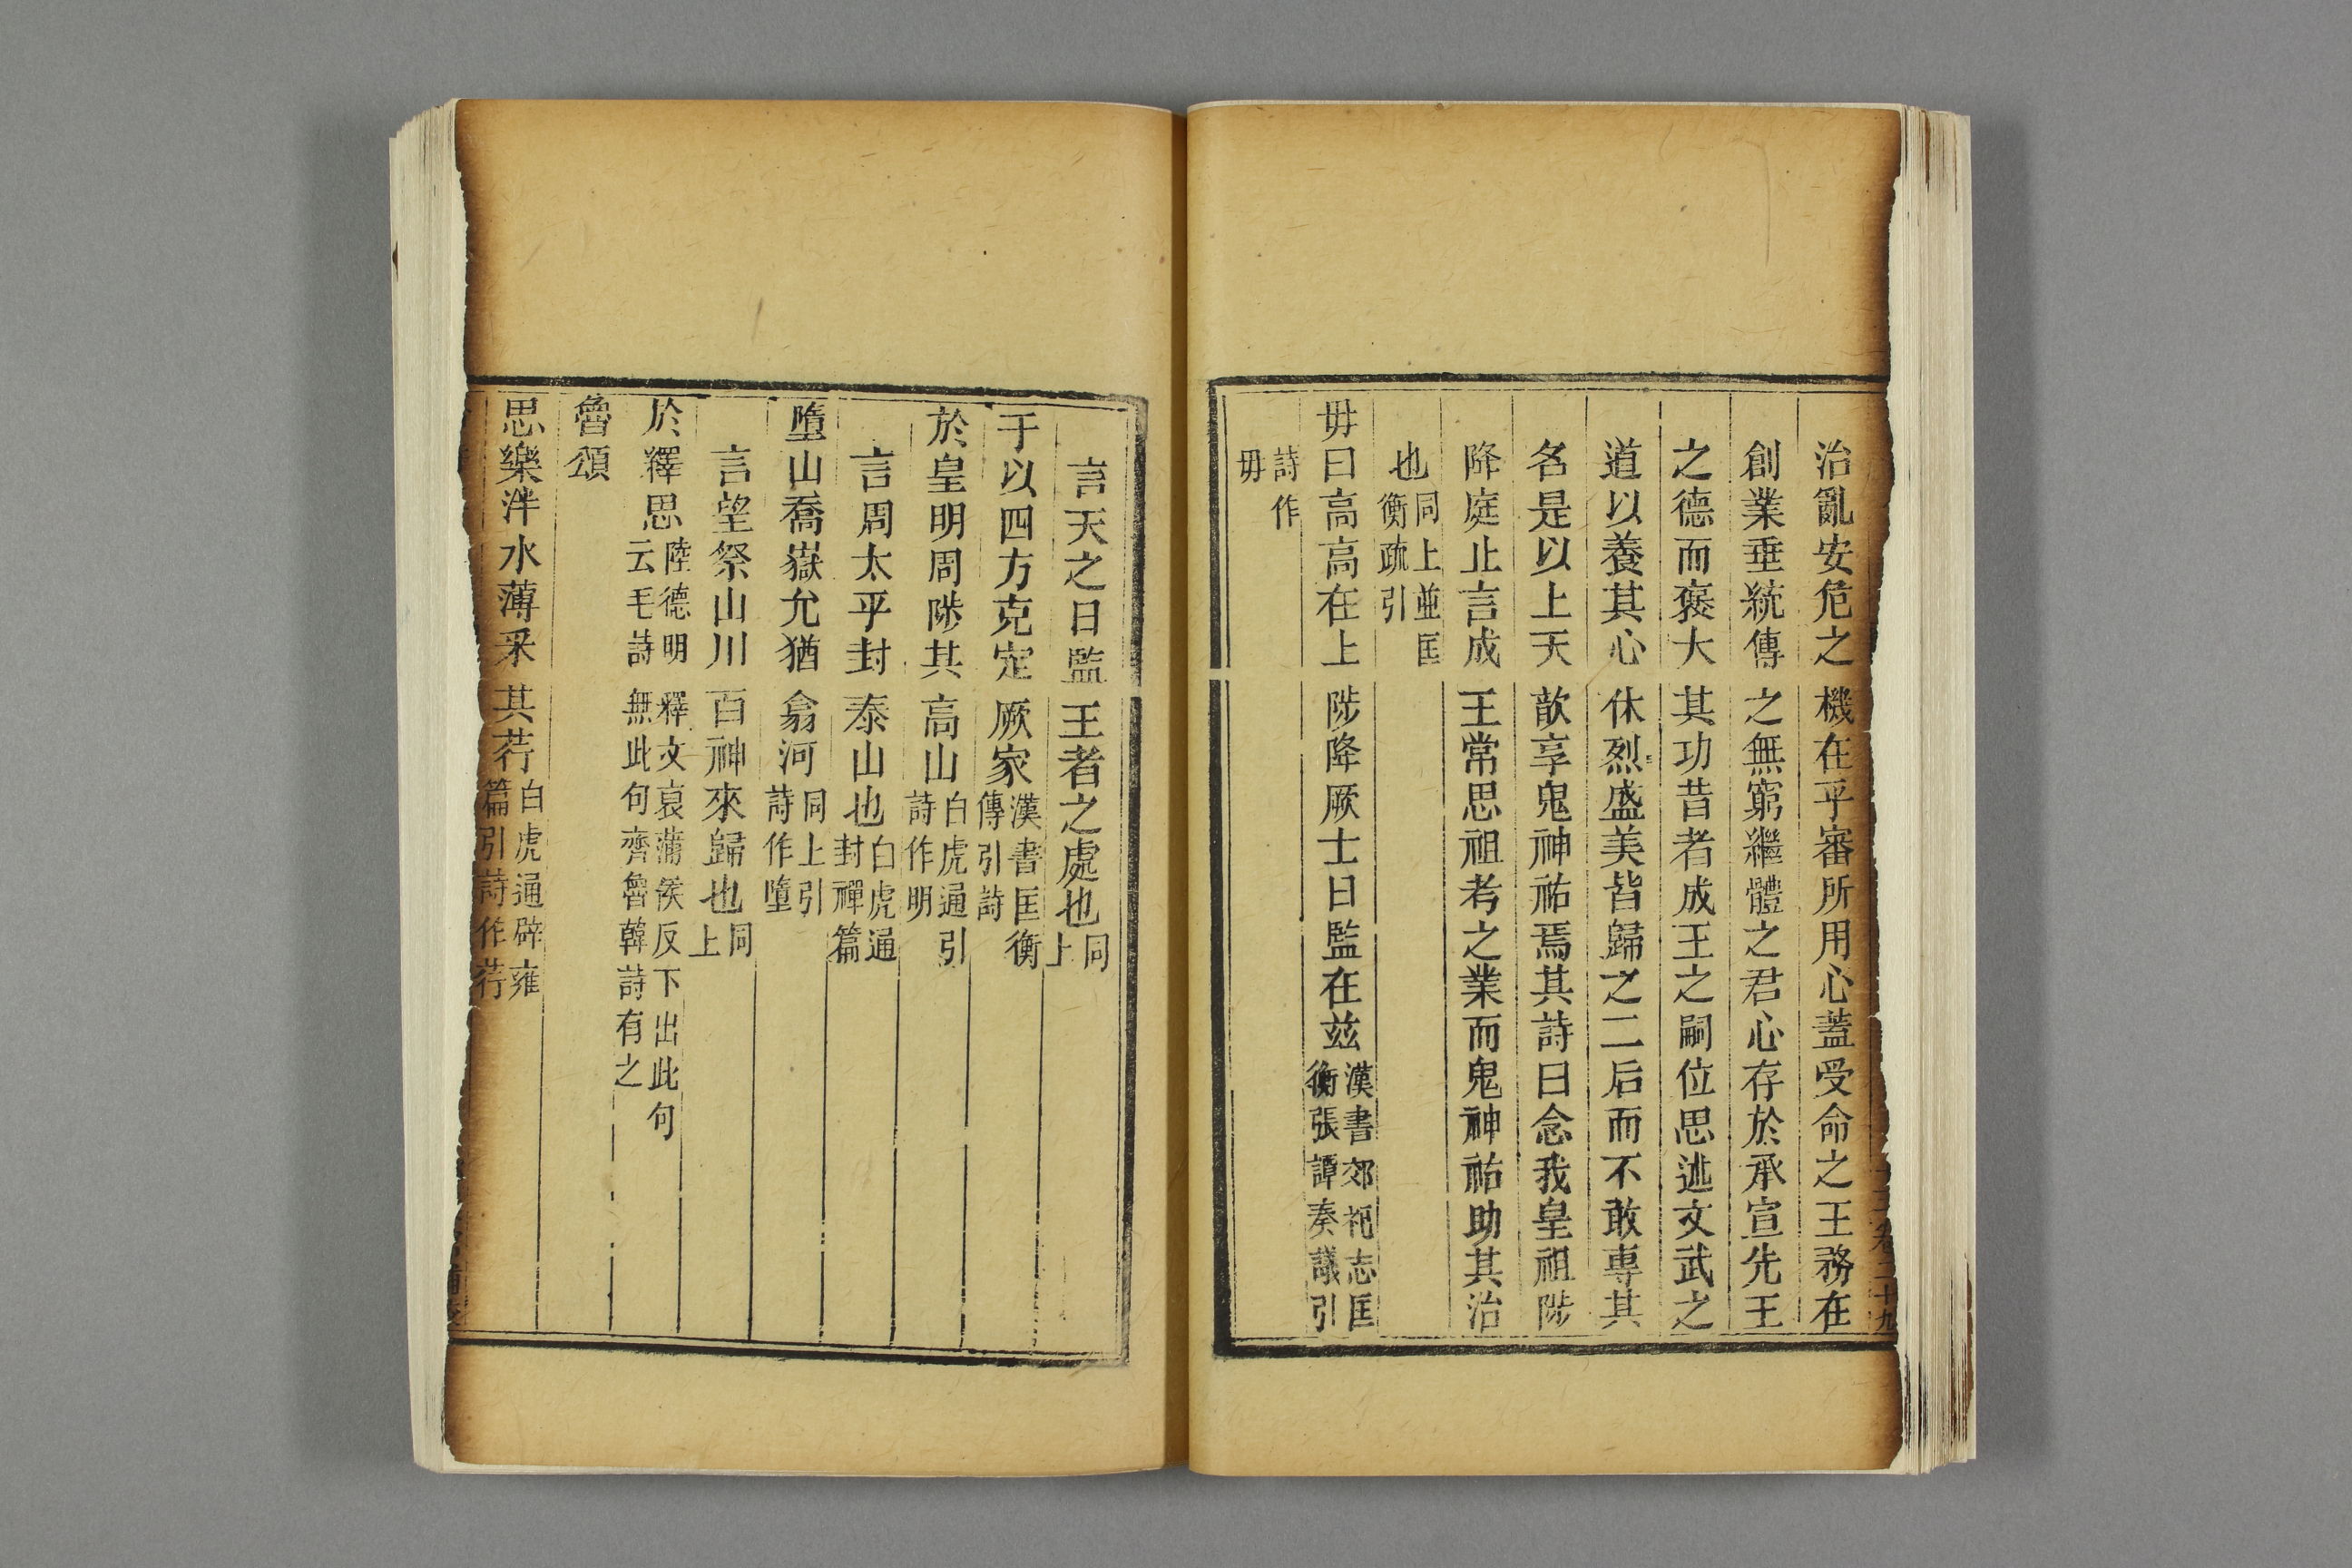 治亂安危之機在乎審所用心蓋受命之王務在
創業垂統傳之無窮繼體之君心存於承宣先王
之德而褒大其功昔者成王之嗣位思述文武之
道以養其心休烈盛美皆歸之二后而不敢專其
名是以上天歆享鬼神祐焉其詩曰念我皇祖陟
降庭止言成王常思祖考之業而鬼神祐助其治
也同上並匡衡疏引
毋曰高高在上陟降厥士日監在茲漢書郊祀志匡衡張譚奏議引
詩作毋
卷二十九
言天之日監王者之處也同上
于以四方克定厥家漢書匡衡傳引詩
於皇明周陟其高山白虎通引詩作明
言周太平封泰山也白虎通封禪篇
墮山喬嶽允猶翕河同上引詩作墮
言望祭山川百神來歸也同上
於繹思陸德明釋文裒蒲侯反下出此句云毛詩無此句齊魯韓詩有之
魯頌
思樂泮水薄采其荇白虎通辟雍篇引詩作荇